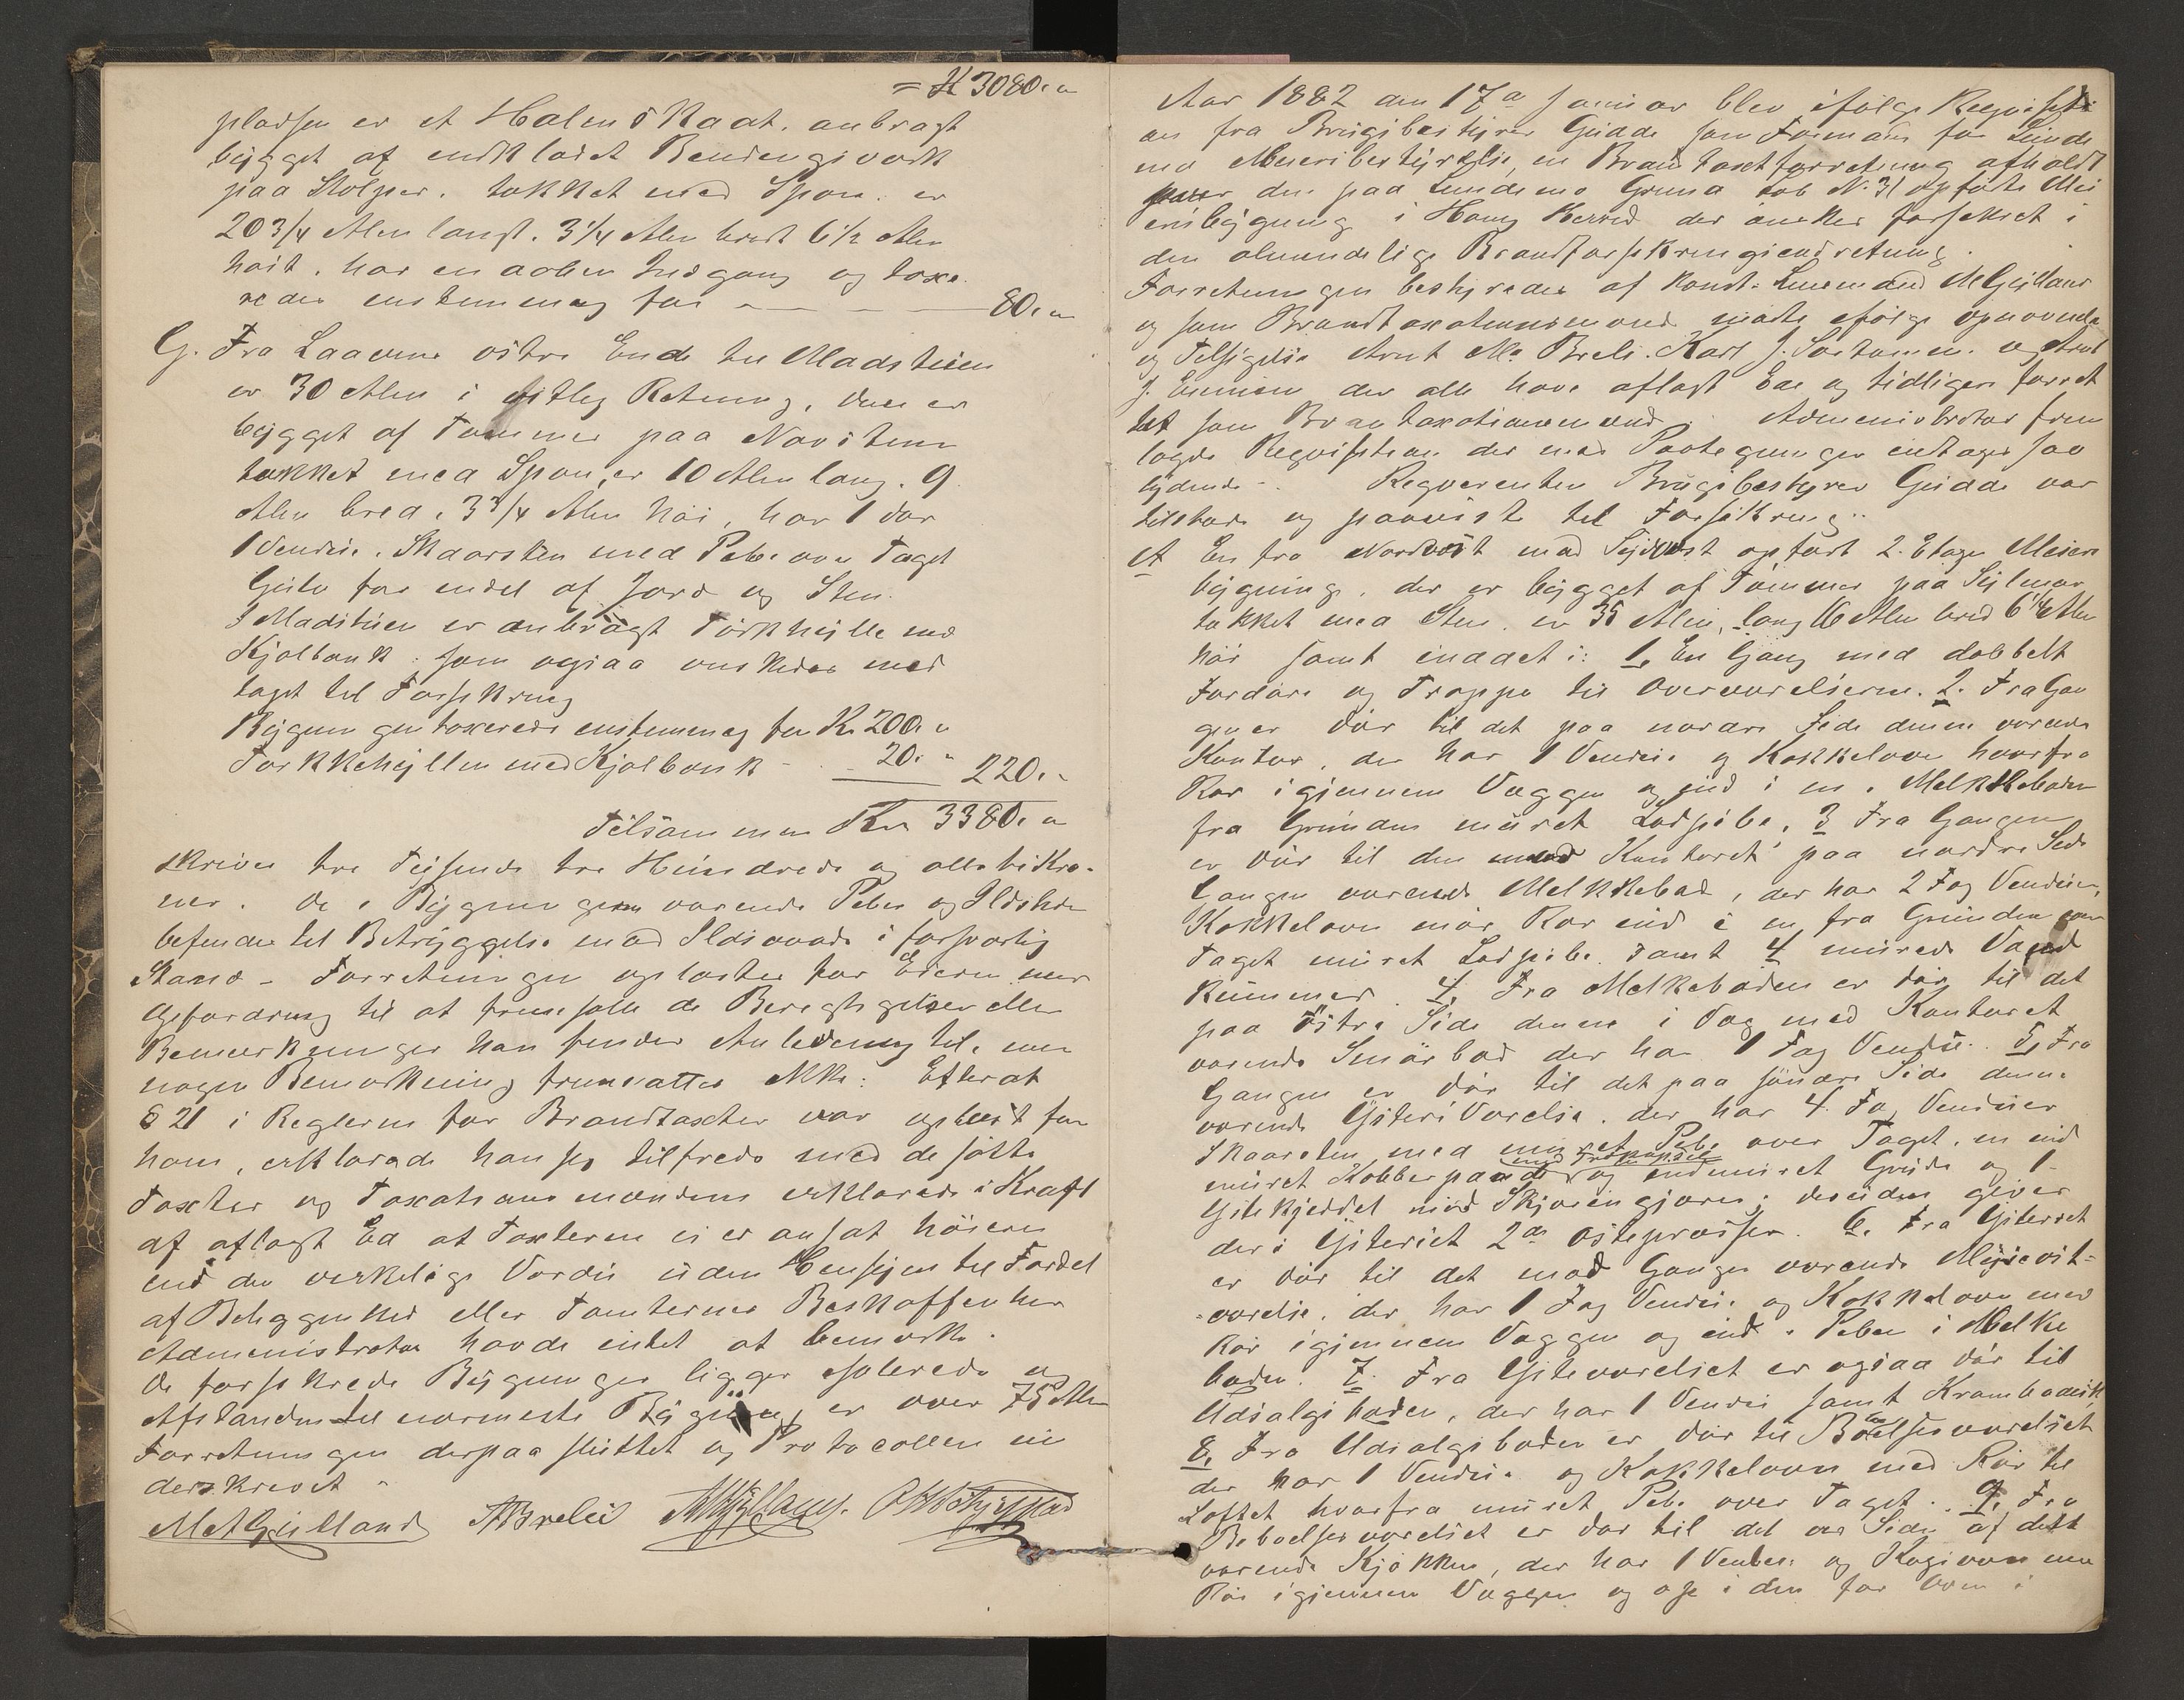 = K 3080. "
pladsen er et Halmskaat. anbragt
bygget af indklædt Bendingsverk
paa Stolper. tækket med Spon. er
20 3/4 Alen langt. 3 1/4 Alen bredt 6 1/2 Alen
høit. har en aaben Indgang og taxe-
redes enstemmig for — — — 80. "
G. Fra Laavens østre Ende til Madstuen
er 30 Alen i østlig Retning, den er
bygget af Tømmer paa Novstene
tækket med Spon, er 10 Alen lang. 9
Alen bred. 3 3/4 Alen høi, har 1 Dør
1 Vendue. Skaarsten med Pibe over Taget
Gulv for endel af Jord og Sten.
I Madstuen er anbragt Tørkhylle med
Kjolbænk. som ogsaa ønskedes med
taget til Forsikring
Bygningen taxeredes enstemmig for Kr. 200. "
Tørkkehyllen med Kjolbænk - 20. " 220. "
Tilsammen Kr 3380. "
skriver tre Tusende tre Hundrede og otteti Kro-
ner. De i Bygningerne værende Piber og Ildsteder
befindes til Betryggelse mod Ildsvaade i forsvarlig
Stand - Forretningen oplæstes for Eieren med
Opfordring til at fremsætte de Berigtigelser eller
Bemærkninger han finder Anledning til, men
nogen Bemærkning fremsattes ikke: Efterat
§ 21 i Reglerne for Brandtaxter var oplæst for
ham, erklærede han sig tilfreds med de satte
Taxter og Taxationsmændene erklærede i Kraft
af aflagt Ed at Taxterne ei er ansat høiere
end den virkelige Værdie uden Hensyn til Fordel
af Beliggenhed eller Tomternes Beskaffenhed
Administrator havde intet at bemærke.
De forsikrede Bygninger ligger isolerede og
Afstanden til nærmeste Bygning er over 75 Alen
Forretningen derpaa sluttet og Protocollen un
derskrevet -
M A Gjilland A Brelie
Aar 1882 den 17de Januar blev ifølge Requisiti
on fra Brugsbestyrer Gudde som Formand for Linde
mo Meieribestyrelse, en Brandtaxtforretning afholdt
paa den paa Lundemo Grund Løb N. 31 opførte Mei
eribygning i Haug Herred der ønskes forsikret i
den almindelige Brandforsikringsindretning.
Forretningen bestyredes af Konst. Lensmand M Gjilland
og som Brandtaxationsmænd mødte ifølge Opnævnelse
og Tilsigelse Arnt M. Brelie. Karl J. og Arnt
J. der alle have aflagt Ed og tidligere forret
tet som Brantaxationsmænd. Administrator frem
lagde Requisition der med Paategninger indtages saa
lydende -. Reqverenten Brugsbestyrer Gudde var
tilstede og paaviste til Forsikring..
A En fra Nordvest mod Sydøst opført 2. Etages Meieri
bygning, der er bygget af Tømmer paa Sylmur
tækket med Sten. er 35 Alen, lang 16 Alen bred 6 1/4 Alen
høi samt inddelt i: 1, En Gang med dobbelt
Fordøre og Trappe til Overværelserne. 2. Fra Gan
gen er Dør til det paa nordre Side denne værende
Kontor, der har 1 Vendue og Kakkelovn hvorfra
Rør igjennem Væggen og ind i en i Melkkeboden
fra Grunden muret Lodpibe, 3 Fra Gangen
er Dør til den mod Kontoret paa nordre Side
Gangen værende Melkkebod, der har 2 Fag Venduer,
Kakkelovn med Rør ind i en fra Grunden over
Taget muret Lodpibe. samt 4 murede Vand
kummer. 4, Fra Melkeboden er dør til det
paa østre Side denne i Væg med Kontoret
værende Smørbod der har 1 Fag Vendue. 5, Fra
Gangen er Dør til det paa søndre Side denne
værende Ysteri Værelse. der har 4. Fag Venduer
Skaarsten med muret Pibe over Taget. en ind
muret Kobberpande og indmuret Gryde og 1
Ystekjeddel med Skjæringjærn; desuden giver
der i Ysteriet 2de Ostepresser. 6. Fra Ysteriet
er Dør til det mod Gangen værende Meieri-
værelse. der har 1 Fag Vendue og Kakkelovn med
Rør igjennem Væggen og ind i Piben i Melke
boden. 7. Fra Ysteværelset er ogsaa dør til
Udsalgsboden, der har 1 Vendue samt Krambodisk
8, Fra Udsalgsboden er Dør til Beboelsesværelset
der har 1 Vendue og Kakkelovn med Rør til
Loftet hvorfra muret Pibe over Taget. 9, Fra
Beboelsesværelset er dør til det ved Siden af dette
værende Kjøkken, der har 1 Vendue og Kogeovn med
Rør igjennem Væggen og op i den før Ovn i